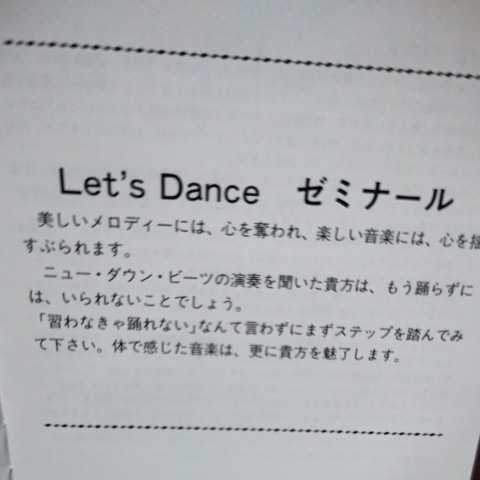 Let's Dance　ゼミナール
美しいメロディーには、心を奪われ、楽しい音楽には、心を揺
すぶられます。
ニュー・ダウン・ビーツの演奏を聞いた貴方は、もう踊らずに
は、いられないことでしょう。
「習わなきゃ踊れない」なんて言わずにまずステップを踏んでみ
て下さい。体で感じた音楽は、更に貴方を魅了します。